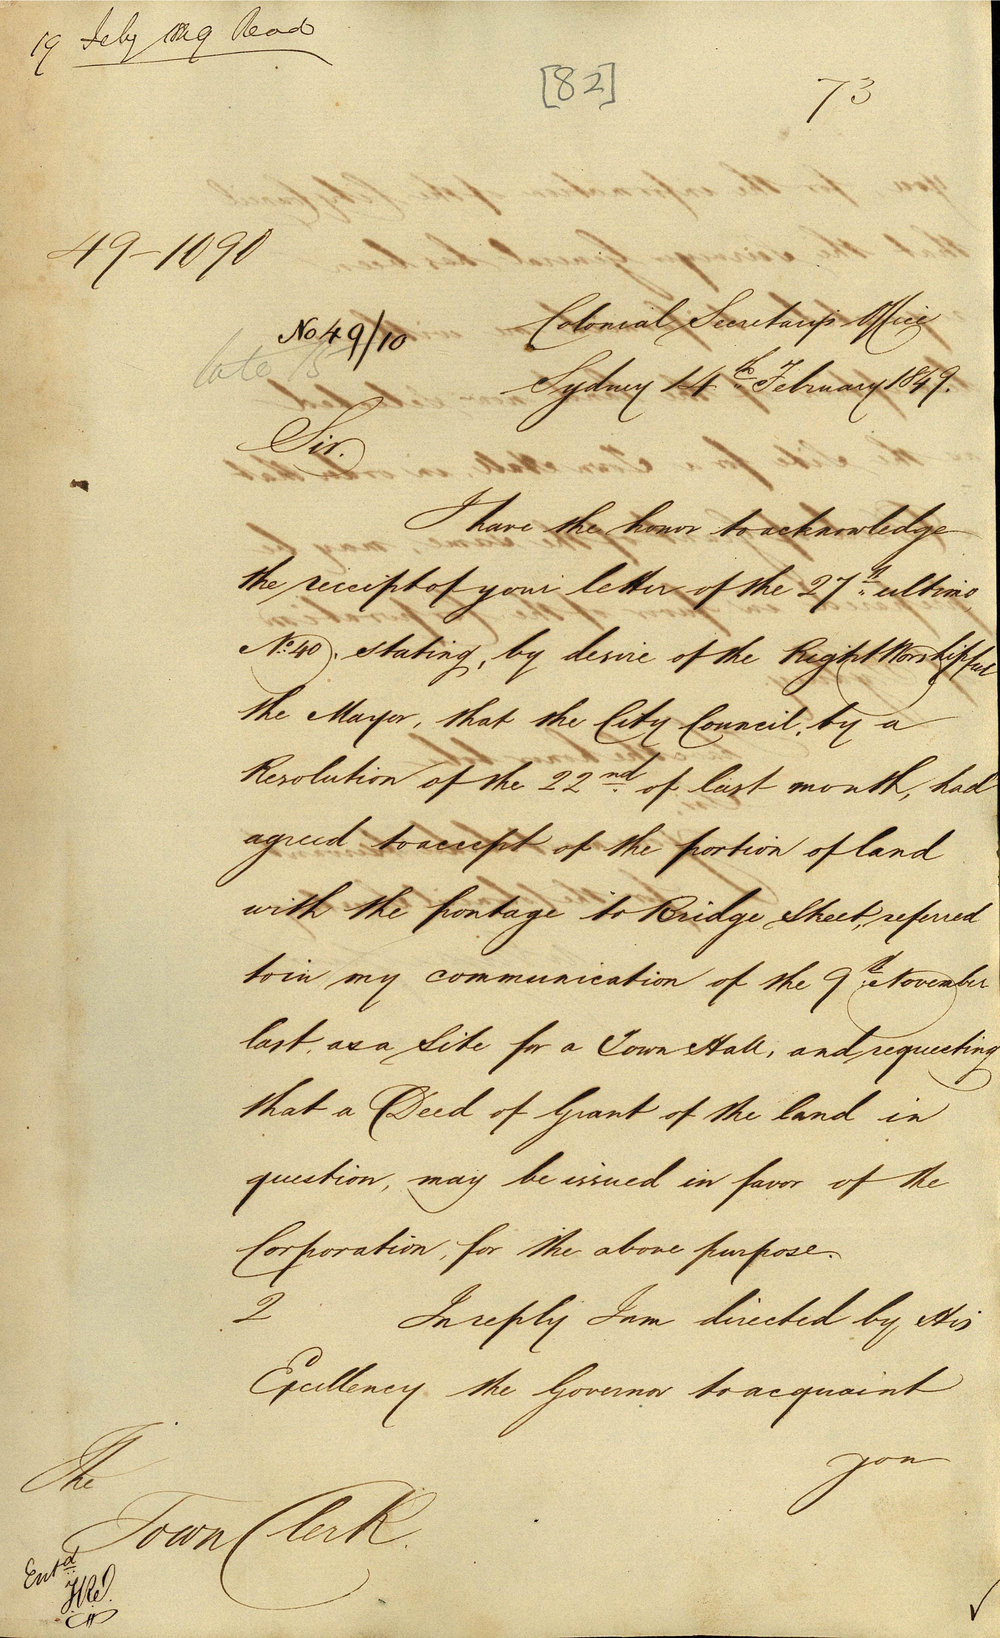 19 Feby 1849 Read
[82]
73
49-1090
No 49/10
late 15
Colonial Secretary's Office
Sydney 14th February 1849.
Sir.
I have the honor to acknowledge
the receipt of your letter of the 27th ultimo,
No. 40, stating, by desire of the Right Worshipful
the Mayor, that the City Council, by a
Resolution of the 22nd of last month, had
agreed to accept of the portion of land
with the frontage to Bridge Street, referred
to in my communication of the 9th November
last, as a Site for a Town Hall, and requesting
that a Deed of Grant of the land in
question, may be issued in favor of the
Corporation, for the above purpose.
2 In reply I am directed by His
Excellency the Governor to acquaint
you
The
Town Clerk.
Entd